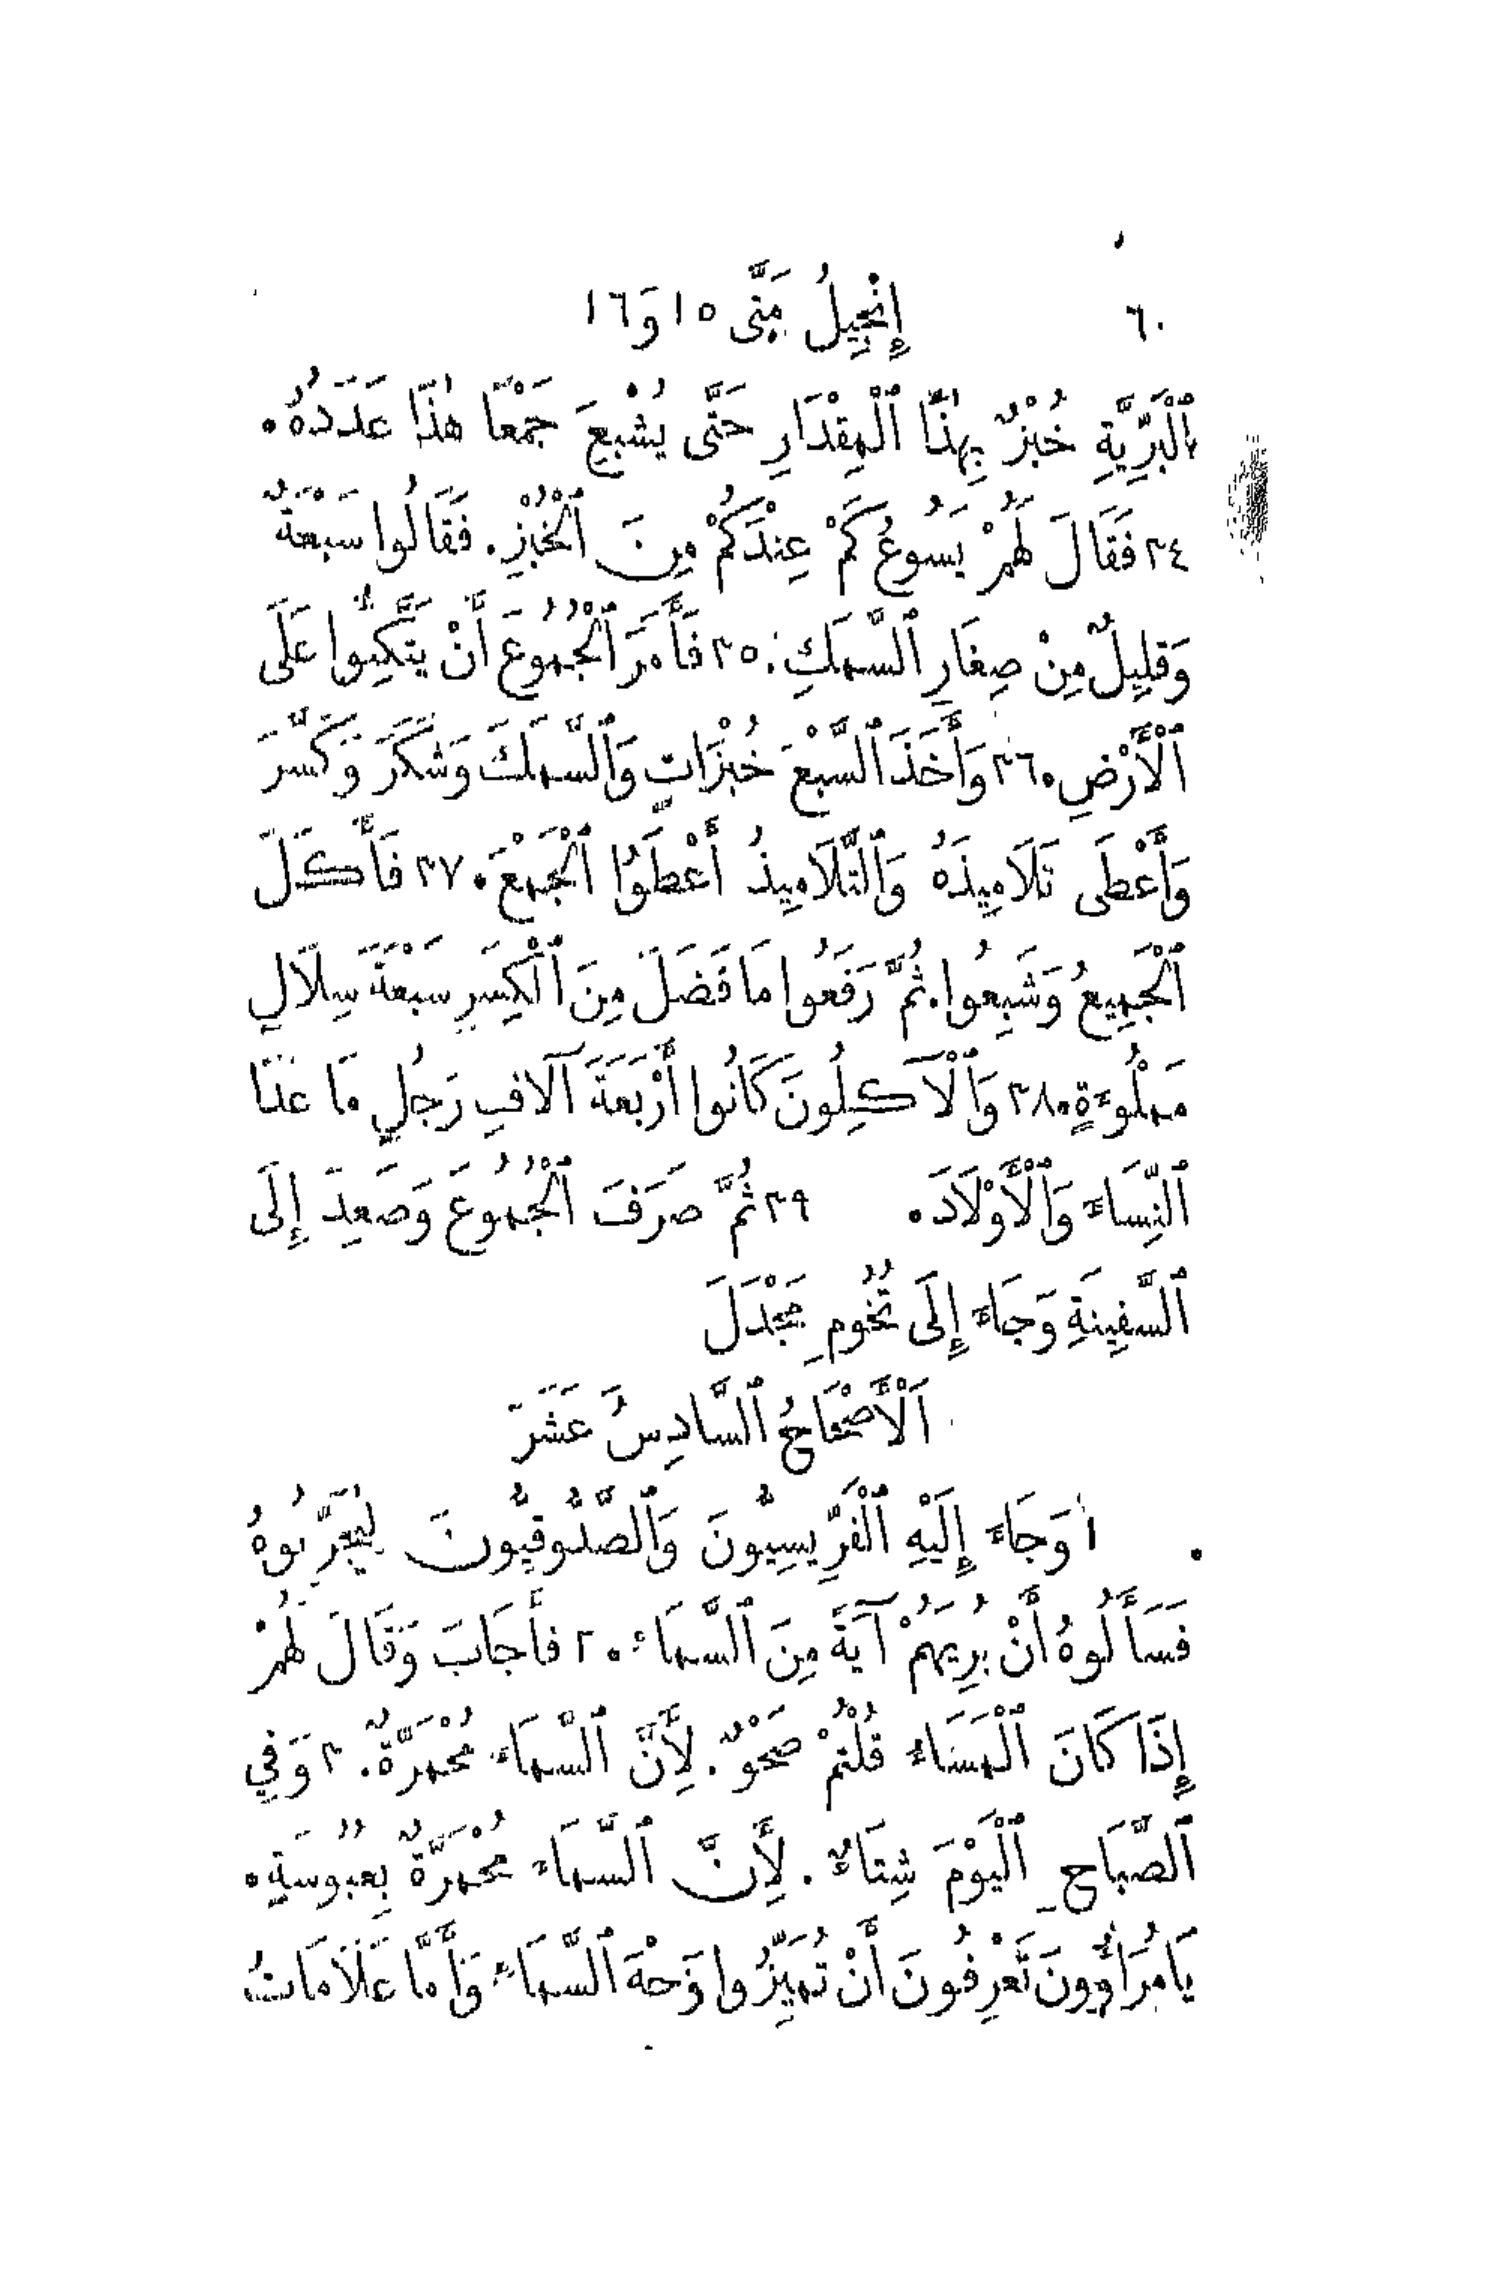 ٦٠ إِنْجِيلُ مَتَّى ١٥ وَ١٦
ٱلْبَرِّيَّةِ خُبْزٌ بِهٰذَا ٱلْمِقْدَارِ حَتَّى يُشْبِعَ جَمْعًا هٰذَا عَدَدُهُ.
٣٤ فَقَالَ لَهُمْ يَسُوعُ كَمْ عِنْدَكُمْ مِنَ ٱلْخُبْزِ. فَقَالُوا سَبْعَةٌ
وَقَلِيلٌ مِنْ صِغَارِ ٱلسَّمَكِ. ٣٥ فَأَمَرَ ٱلْجُمُوعَ أَنْ يَتَّكِئُوا عَلَى
ٱلْأَرْضِ. ٣٦ وَأَخَذَ ٱلسَّبْعَ خُبْزَاتٍ وَٱلسَّمَكَ وَشَكَرَ وَكَسَّرَ
وَأَعْطَى تَلَامِيذَهُ وَٱلتَّلَامِيذُ أَعْطَوُا ٱلْجَمْعَ. ٣٧ فَأَكَلَ
ٱلْجَمِيعُ وَشَبِعُوا. ثُمَّ رَفَعُوا مَا فَضَلَ مِنَ ٱلْكِسَرِ سَبْعَةَ سِلَالٍ
مَمْلُوءَةٍ. ٣٨ وَٱلْآكِلُونَ كَانُوا أَرْبَعَةَ آلَافِ رَجُلٍ مَا عَدَا
ٱلنِّسَاءَ وَٱلْأَوْلَادَ. ٣٩ ثُمَّ صَرَفَ ٱلْجُمُوعَ وَصَعِدَ إِلَى
ٱلسَّفِينَةِ وَجَاءَ إِلَى تُخُومِ مَجْدَلَ
اَلْأَصْحَاحُ ٱلسَّادِسُ عَشَرَ
١ وَجَاءَ إِلَيْهِ ٱلْفَرِّيسِيُّونَ وَٱلصَّدُّوقِيُّونَ لِيُجَرِّبُوهُ
فَسَأَلُوهُ أَنْ يُرِيَهُمْ آيَةً مِنَ ٱلسَّمَاءِ. ٢ فَأَجَابَ وَقَالَ لَهُمْ
إِذَا كَانَ ٱلْمَسَاءُ قُلْتُمْ صَحْوٌ. لِأَنَّ ٱلسَّمَاءَ مُحْمَرَّةٌ. ٣ وَفِي
ٱلصَّبَاحِ ٱلْيَوْمَ شِتَاءٌ. لِأَنَّ ٱلسَّمَاءَ مُحْمَرَّةٌ بِعُبُوسَةٍ.
يَا مُرَاؤُونَ تَعْرِفُونَ أَنْ تُمَيِّزُوا وَجْهَ ٱلسَّمَاءِ وَأَمَّا عَلَامَاتُ